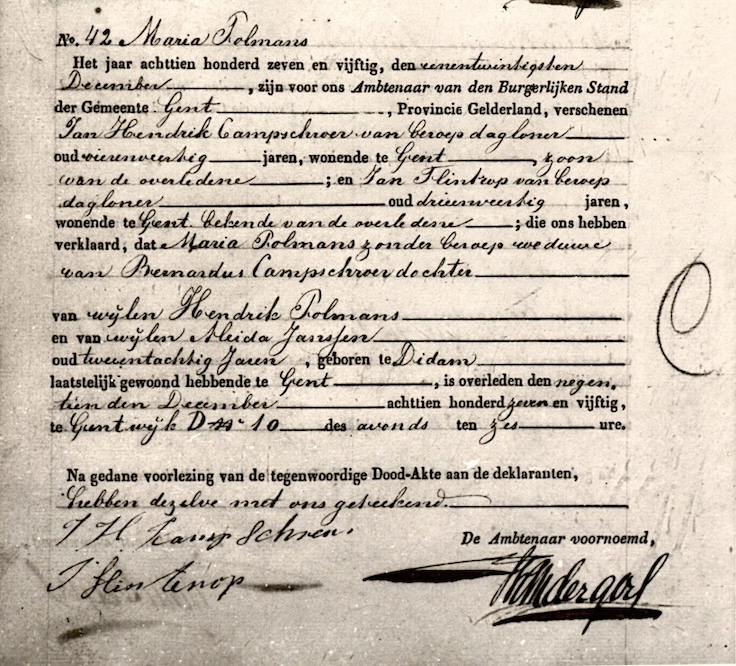 No. 42 Maria Polmans
Het jaar achttien honderd zeven en vijftig, den eenentwintigsten
December, zijn voor ons Ambtenaar van den Burgerlijken Stand
der Gemeente Gent, Provincie Gelderland, verschenen
Jan Hendrik Campschroer van beroep dagloner
oud vierenveertig jaren, wonende te Gent, zoon
van de overledene ; en Jan Flintrop van beroep
dagloner oud drieenveertig jaren,
wonende te Gent. bekende van de overledene ; die ons hebben
verklaard, dat Maria Polmans zonder beroep weduwe
van Bernardus Campschroer dochter
van wijlen Hendrik Polmans
en van wijlen Aleida Janssen
oud tweeentachtig Jaren, geboren te Didam
laatstelijk gewoond hebbende te Gent, is overleden den negen,
tienden December achttien honderd zeven en vijftig,
te Gent wijk D No 10 des avonds ten zes ure.
Na gedane voorlezing van de tegenwoordige Dood-Akte aan de deklaranten,
hebben dezelve met ons geteekend.
J H Kamp Schreur
De Ambtenaar voornoemd,
J flintenop